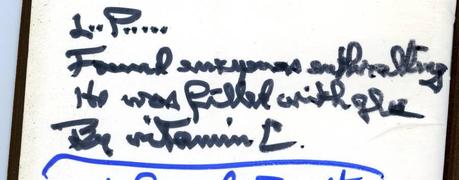 L.. P.....
Found enzymes enthralling
He was filled with glee
By vitamin C.